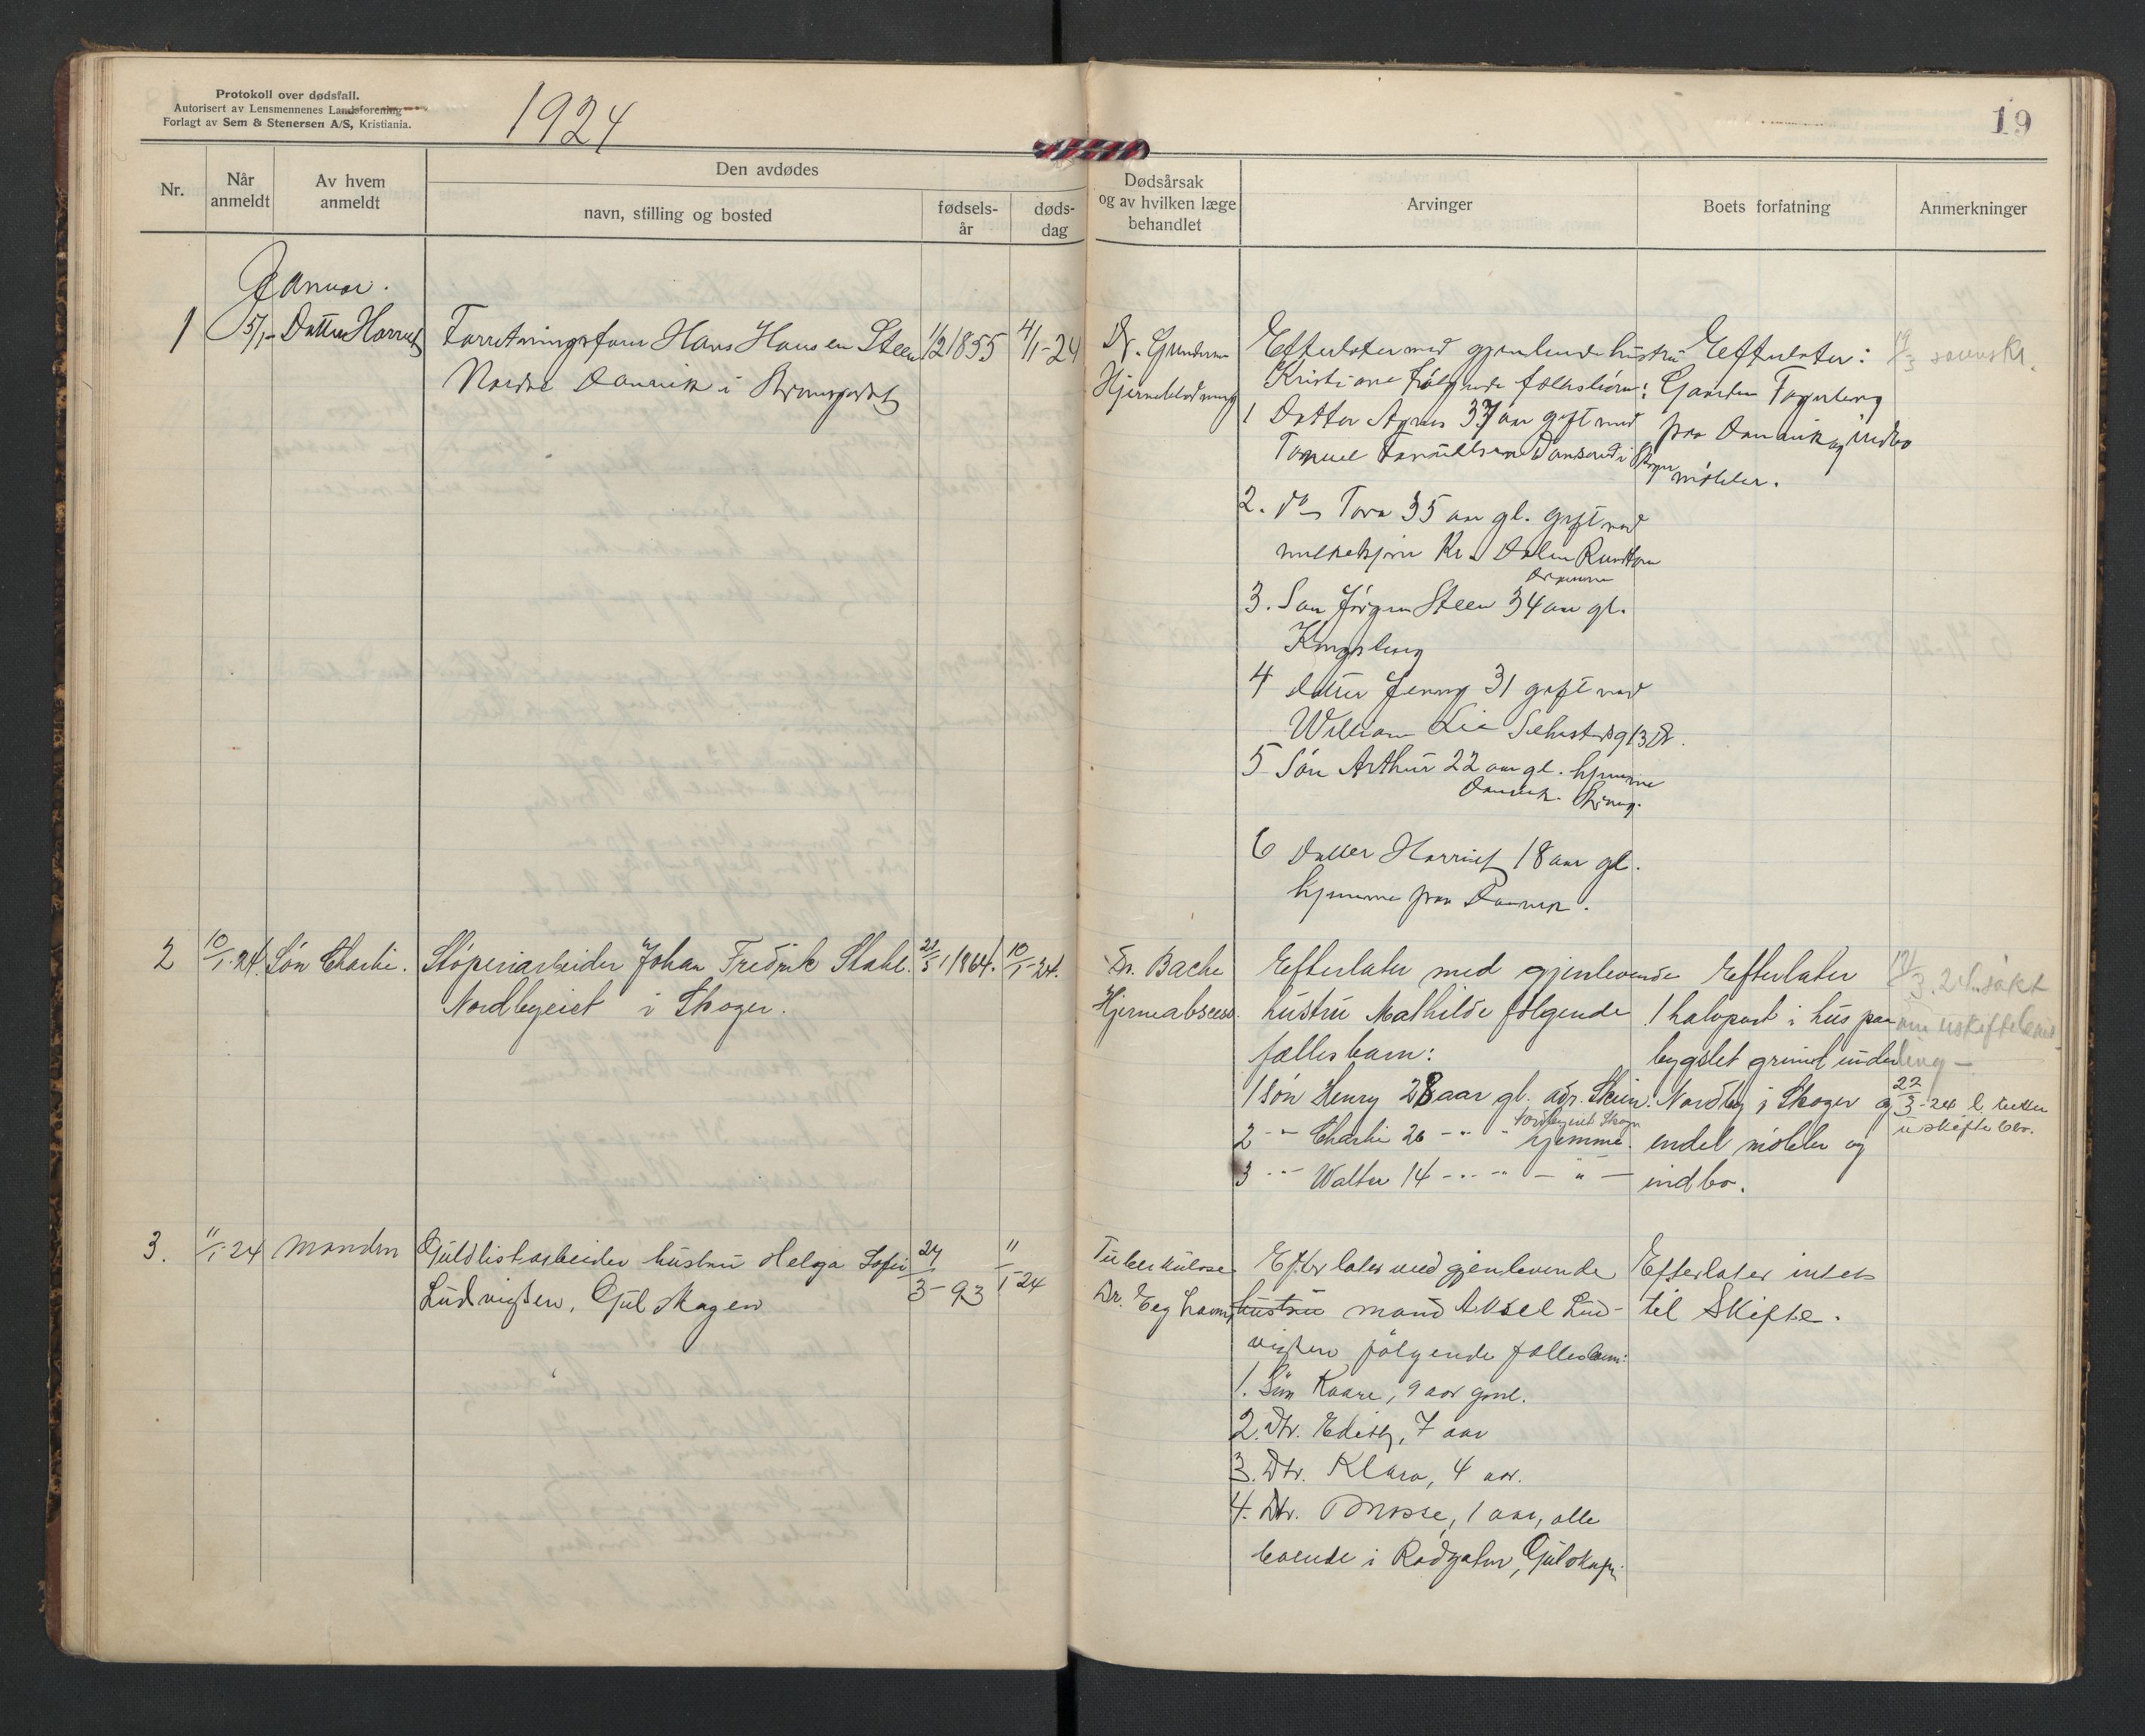 Protokoll over dødsfall.
Autorisert av Lensmennenes Landsforening
Forlagt av Sem & Stenersen A/S, Kristiania.
1924
19
Nr.
Når anmeldt
Av hvem anmeldt
Den avdødes
navn, stilling og bosted
fødsels-
år
døds-
dag
Dødsårsak
og av hvilken læge
behandlet
Arvinger
Boets forfatning
Anmerkninger
Januar.
1 5/1- Datter Harriet
Hans Hansen Steen 1/2 1855 4/1-24
Nordre Danvik i Strømsgodset
Hjerneblødning
Efterlater med gjenlevende hustru
Kristiane følgende fællesbørn:
1 Datter Agnes 37 aar gift med
2. do Tora 35 aar gl. gift med
Drammen
3. Søn Jørgen Steen 34 aar gl.
Kongsberg
4 datter Jenny 31 gift med
William Lie
5 Søn Arthur 22 aar gl. hjemme
6 Datter Harriet 18 aar gl.
hjemme paa Danvik.
Efterlater:
Gaarden Fagerberg
paa Danvik og indbo
møbler.
2 10/1-24. Søn Charlie.
Støperiarbeider Johan Fredrik Stahl. 1864. 10/1-24.
Nordbyeiet i Skoger.
Dr. Bache
Hjerneabscess.
Efterlater med gjenlevende
hustru Mathilde følgende
fællesbarn:
1 søn Henry 28 aar gl. adr. Skien.
Nordbyeiet Skoger
2 -"- Charlie 26 -"- " hjemme.
3 -"- Walter 14 -"- " - " -
Efterlater
1 halvpart i hus paa
bygslet grund under
Nordby i Skoger og
endel møbler og
indbo.
3.24. søkt
om uskiftebevil-
ling -
22/3-24
uskiftebev.
3. 11/1-24 Manden
Guldlistarbeider hustru Helga Sofie 24/3-93 11/1-24
Ludvigsen, Gulskogen
Tuberkulose
Dr.
Efterlater med gjenlevende
hustru mand Aksel Lud-
vigsen følgende fællesbarn:
1. Søn Kaare, 9 aar gml.
2. Dtr. Edith, 7 aar
3. Dtr. Klara, 4 aar.
4. Dtr. Mosse, 1 aar, alle
boende i Rødgaten, Gulskogen
Efterlater intet
til Skifte.